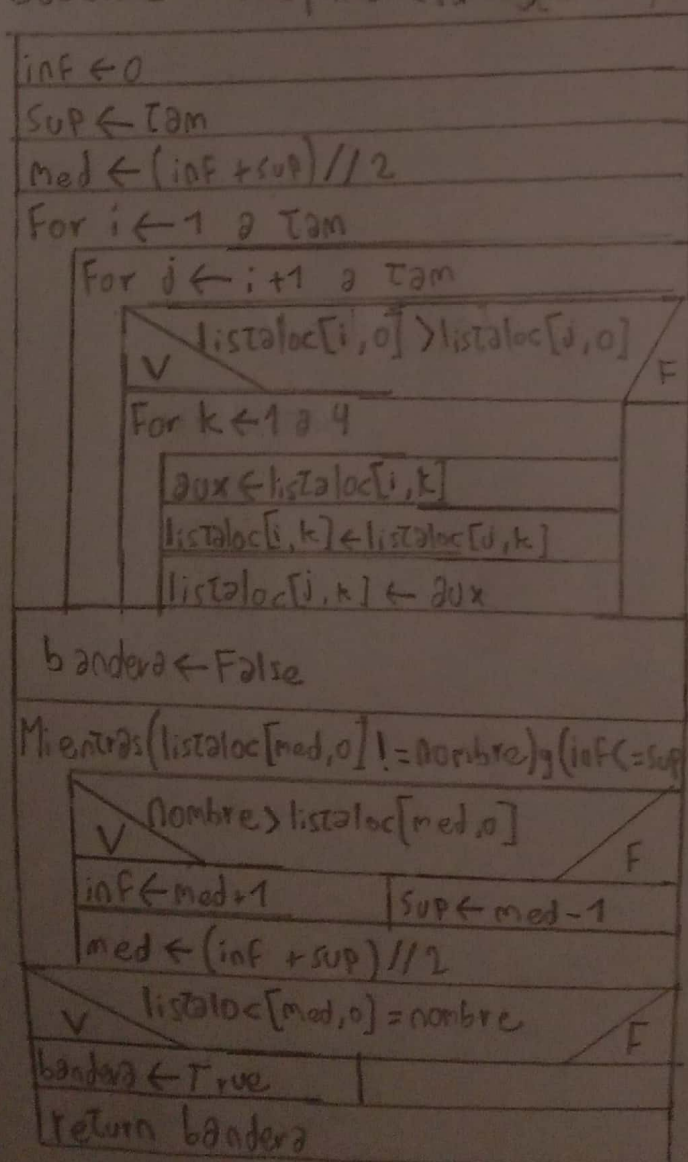 inf ← 0
sup ← tam
med ← (inf + sup) // 2
For i ← 1 a tam
For j ← i+1 a tam
listaloc[i,0] > listaloc[j,0]
V
F
For k ← 1 a 4
aux ← listaloc[i,k]
listaloc[i,k] ← listaloc[j,k]
listaloc[j,k] ← aux
bandera ← False
Mientras(listaloc[med,0] != nombre) y (inf <= sup
nombre > listaloc[med,0]
V
F
inf ← med+1
sup ← med-1
med ← (inf + sup) // 2
listaloc[med,0] = nombre
V
F
bandera ← True
return bandera